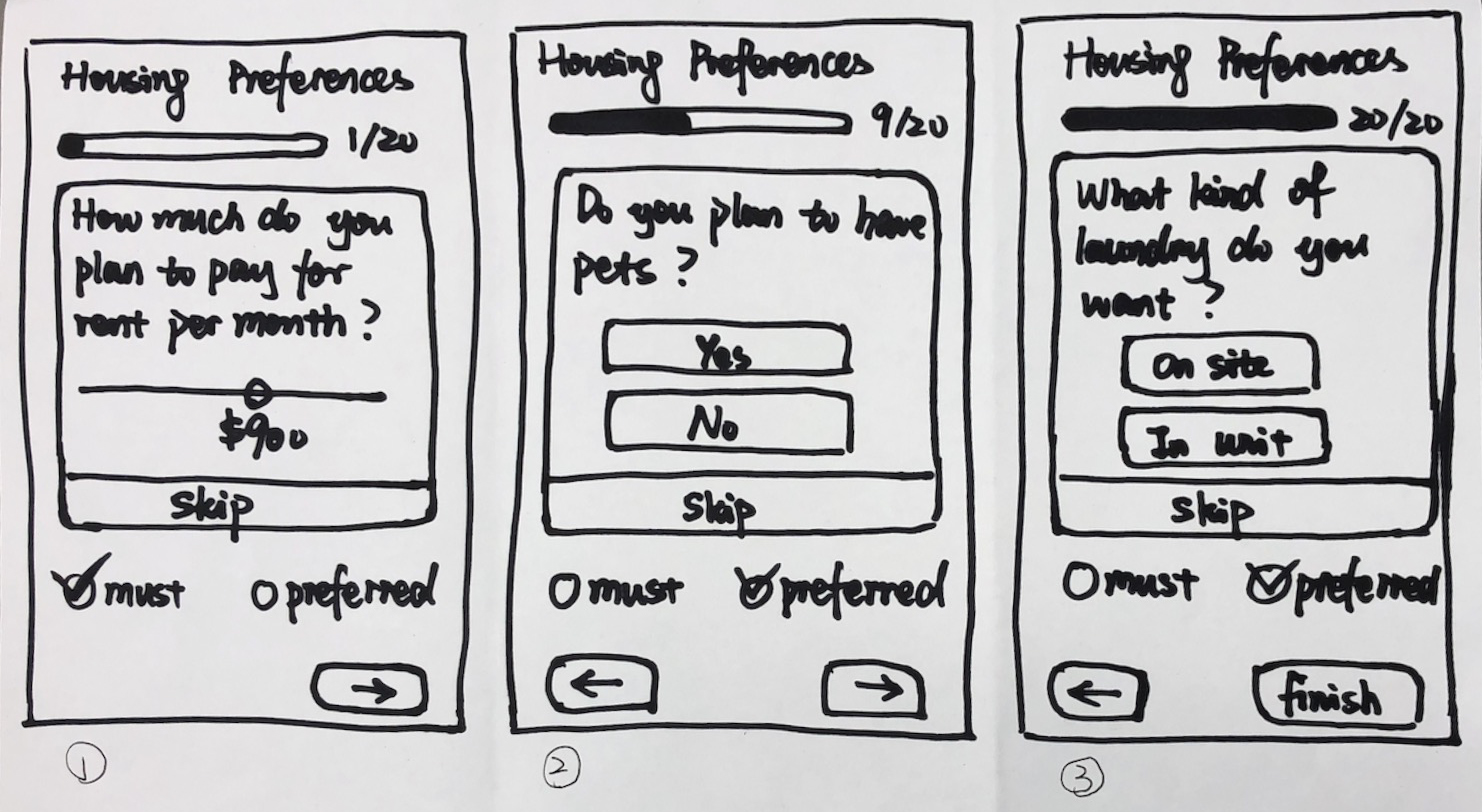 Housing Preferences
1/20
How much do you
plan to pay for
rent per month?
$900
Skip
must preferred
→
1
Housing Preferences
9/20
Do you plan to have
pets?
Yes
No
Skip
must preferred
← →
2
Housing Preferences
20/20
What kind of
laundry do you
want?
On site
In unit
Skip
must preferred
← finish
3